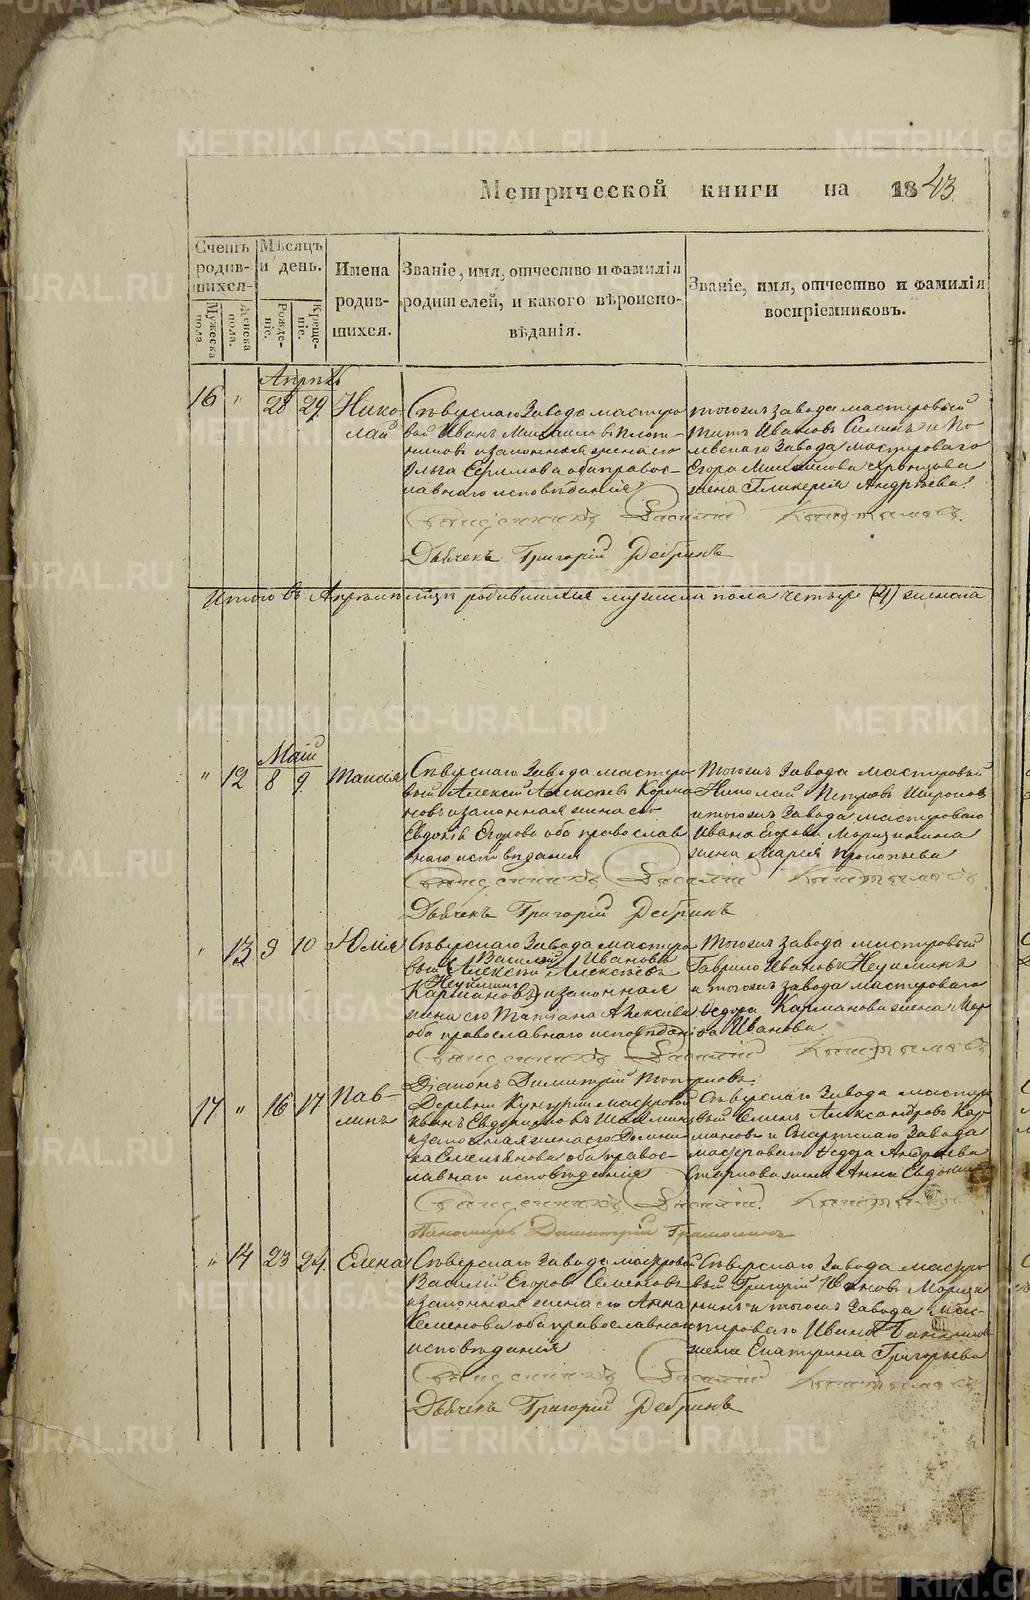 Метрической книги на 1843.
Счетъ родив- шихся.
Мѣсяцъ и день.
Имена родив- шихся.
Званіе, имя, отчество и фамилія родителей, и какого вѣроиспо- вѣданія.
Званіе, имя, отчество и фамилія воспріемниковъ.
Мужеска пола.
Женска пола.
Рожде- ніе.
Креще- ніе.
Апрѣль
16 " 28 29 Нико-
лай
Сѣверскаго Завода мастеро-
вой Иванъ Михайловъ Плот-
никовъ и законная жена его
Ольга Ефимова оба правос-
лавнаго исповѣданія
тогожъ завода мастеровый
Титъ Ивановъ Силинъ и По-
левскаго Завода мастероваго
Егора Михайлова
жена Гликерія Андреева.
Священникъ Василій
Дьячекъ Григорій Дебринъ
Итого въ Апрѣлѣ родившихся мужеска пола четыре (4) женска
Май
" 12 8 9 Таисія
Сѣверскаго Завода мастеро-
вый Алексѣй Алексѣевъ Карма-
новъ и законная жена его
Евдокія Егорова оба православ
наго исповѣданія
Тогожъ Завода мастеровый
Николай Петровъ
и тогожъ Завода мастероваго
Ивана Егорова Морзинина
жена Марія Прокопьева
Священникъ Василій
Дьячекъ Григорій Дебринъ
" 13 9 10 Юлія
Сѣверскаго Завода мастеро
Василій Ивановъ
вый Алексѣй Алексѣевъ
Неуйминъ
Кармановъ и законная
жена его Татіана Алексѣева
оба православнаго исповѣданія
Тогожъ завода мастеровый
Гаврило Ивановъ Неуйминъ
и тогожъ завода мастероваго
Ѳедора Карманова жена Мар
ѳа Иванова.
Священникъ Василій
Діаконъ Димитрій
17 " 16 17 Пав-
линъ
Деревни Кунгурки мастеровой
Иванъ Евдокимовъ
и законная жена его Домни-
ка Емельянова оба правос-
лавнаго исповѣданія
Сѣверскаго Завода мастеро
вый Семенъ Александровъ Кар-
мановъ и Сысертскаго Завода
мастероваго Ѳедора Андреева
жена Анна Евдокимо
Священникъ Василій
Пономарь Димитрій
" 14 23 24 Елена
Сѣверскаго Завода мастеровой
Василій Егоровъ Семеновъ
и законная жена его Анна
Семенова оба православнаго
исповѣданія
Сѣверскаго Завода мастеро
вый Григорій Ивановъ Морзи
нинъ и тогожъ Завода мас-
тероваго Ивана
жена Екатерина Григорьева
Священникъ Василій
Дьячекъ Григорій Дебринъ
METRIKI.GASO-URAL.RU